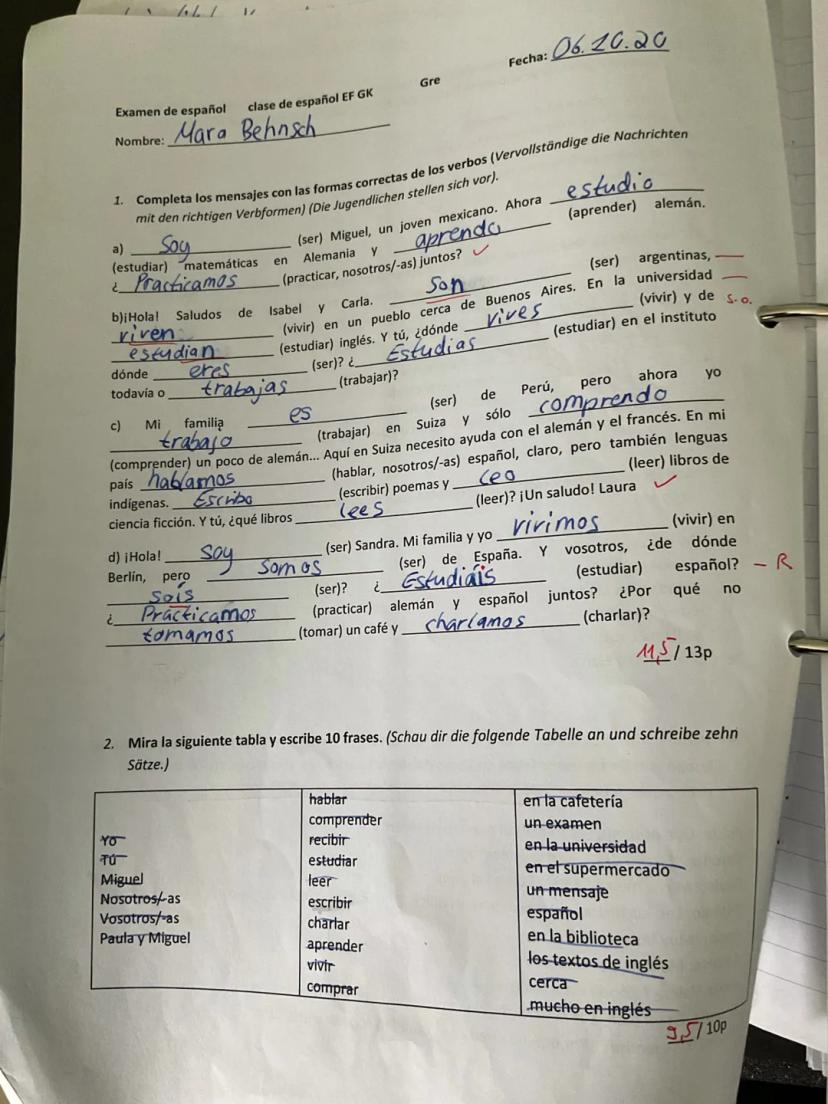 Fecha: 06.10.20
Examen de español clase de español EF GK Gre
Nombre: Mara Behnsch
1. Completa los mensajes con las formas correctas de los verbos (Vervollständige die Nachrichten
mit den richtigen Verbformen) (Die Jugendlichen stellen sich vor).
a) Soy (ser) Miguel, un joven mexicano. Ahora estudio
(estudiar) matemáticas en Alemania y aprendo (aprender) alemán.
¿ Practicamos (practicar, nosotros/-as) juntos?
b)¡Hola! Saludos de Isabel y Carla. son (ser) argentinas,
viven (vivir) en un pueblo cerca de Buenos Aires. En la universidad
estudian (estudiar) inglés. Y tú, ¿dónde vives (vivir) y de s.o.
dónde eres (ser)? ¿ Estudias (estudiar) en el instituto
todavía o trabajas (trabajar)?
c) Mi familia es (ser) de Perú, pero ahora yo
trabajo (trabajar) en Suiza y sólo comprendo
(comprender) un poco de alemán... Aquí en Suiza necesito ayuda con el alemán y el francés. En mi
país hablamos (hablar, nosotros/-as) español, claro, pero también lenguas
indígenas. Escribo (escribir) poemas y leo (leer) libros de
ciencia ficción. Y tú, ¿qué libros lees (leer)? ¡Un saludo! Laura
d) ¡Hola! Soy (ser) Sandra. Mi familia y yo vivimos (vivir) en
Berlín, pero somos (ser) de España. Y vosotros, ¿de dónde
soís (ser)? ¿ Estudiáis (estudiar) español? - R
¿ Prácticamos (practicar) alemán y español juntos? ¿Por qué no
tomamos (tomar) un café y charlamos (charlar)?
11,5 / 13p
2. Mira la siguiente tabla y escribe 10 frases. (Schau dir die folgende Tabelle an und schreibe zehn
Sätze.)
Yo
Tú
Miguel
Nosotros/-as
Vosotros/-as
Paula y Miguel
hablar
comprender
recibir
estudiar
leer
escribir
charlar
aprender
vivir
comprar
en la cafetería
un examen
en la universidad
en el supermercado
un mensaje
español
en la biblioteca
los textos de inglés
cerca
mucho en inglés
9,5 / 10p